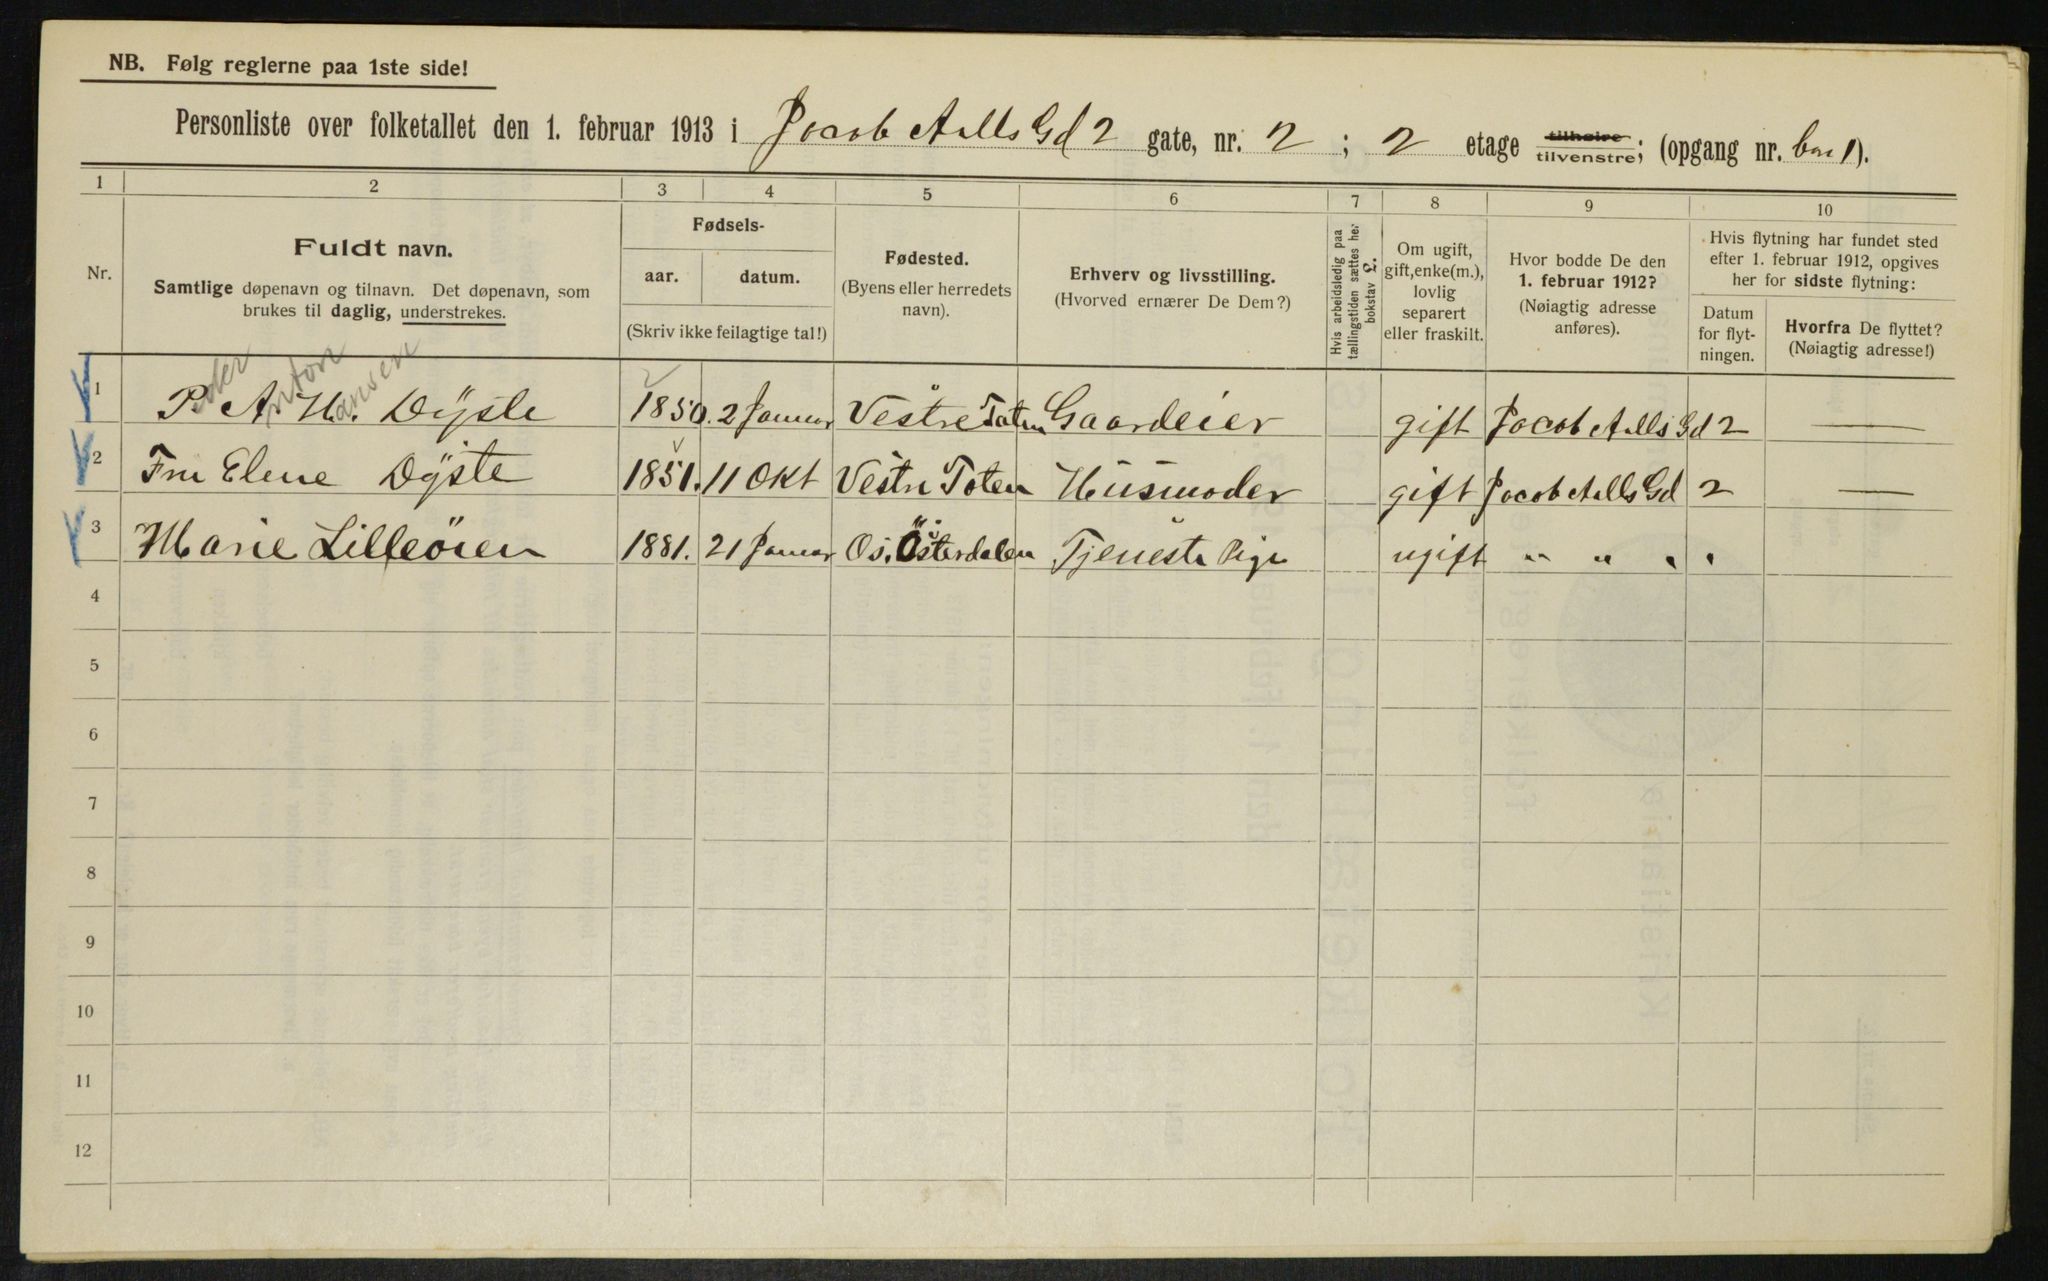 NB. Følg reglerne paa 1ste side!
Personliste over folketallet den 1. februar 1913 i Jacob Aalls Gd 2 gate, nr. 2; 2 etage tilhøire tilvenstre; (opgang nr. 1).
1 2 3 4 5 6 7 8 9 10
Nr.
Fuldt navn.
Samtlige døpenavn og tilnavn. Det døpenavn, som
brukes til daglig, understrekes.
Fødsels-
aar. datum.
(Skriv ikke feilagtige tal!)
Fødested.
(Byens eller herredets
navn).
Erhverv og livsstilling.
(Hvorved ernærer De Dem?)
Hvis arbeidsledig paa
tællingstiden sættes her
bokstav L.
Om ugift,
gift, enke(m.),
lovlig
separert
eller fraskilt.
Hvor bodde De den
1. februar 1912?
(Nøiagtig adresse
anføres).
Hvis flytning har fundet sted
efter 1. februar 1912, opgives
her for sidste flytning:
Datum
for flyt-
ningen.
Hvorfra De flyttet?
(Nøiagtig adresse!)
eder Anton ansen
1 P. A. H. Dÿste 1850. 2 Januar Vestre Toten Gaardeier gift Jacob Aalls Gd 2 —
2 Fru Elene Dÿste 1851. 11 Okt Vestre Toten Husmoder gift Jacob Aalls Gd 2 —
3 Marie Lilleöien 1881. 21 Januar Os. Österdalen Tjeneste Pige ugift " " " "
4
5
6
7
8
9
10
11
12